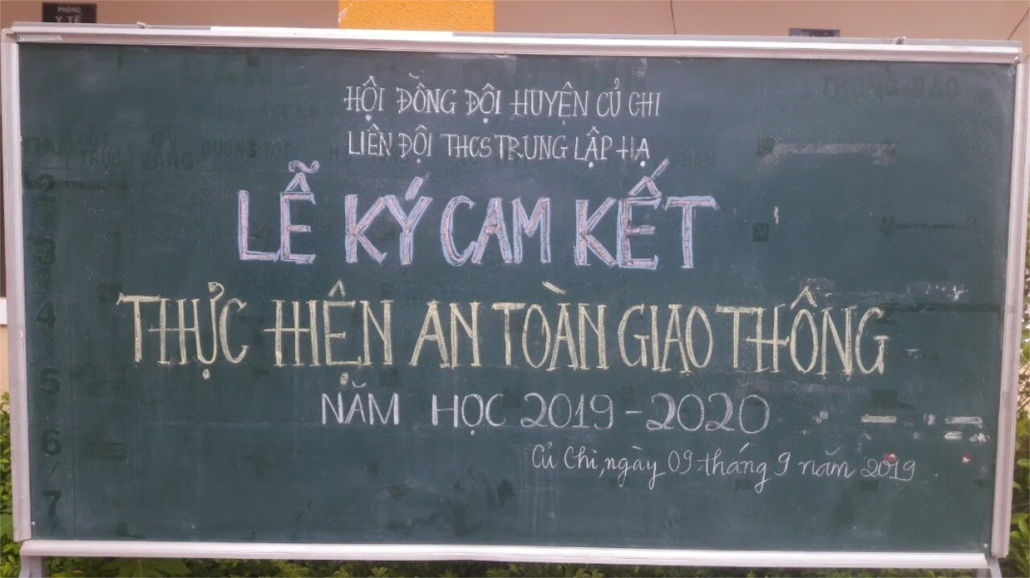 PHÒNG
Y TẾ
HỘI ĐỒNG ĐỘI HUYỆN CỦ CHI
LIÊN ĐỘI THCS TRUNG LẬP HẠ
LỄ KÝ CAM KẾT
THỰC HIỆN AN TOÀN GIAO THÔNG
NĂM HỌC 2019 - 2020
Củ Chi, ngày 09 tháng 9 năm 2019
2
3
4
5
6
7